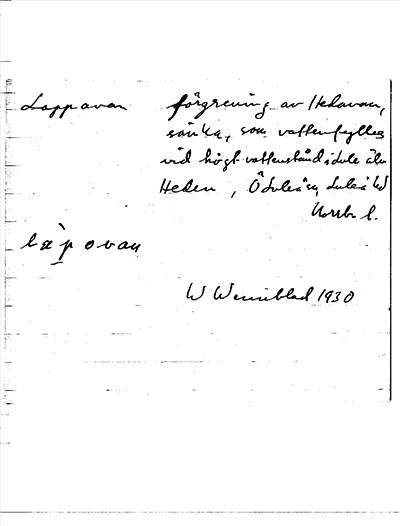 Lappavan förgrening av Hedavan,
sänka, som vattenfylles
vid högt vattenstånd i Lule älv
Heden, Ö Luleå sn, Luleå
Norrb l.
W Wennblad 1930